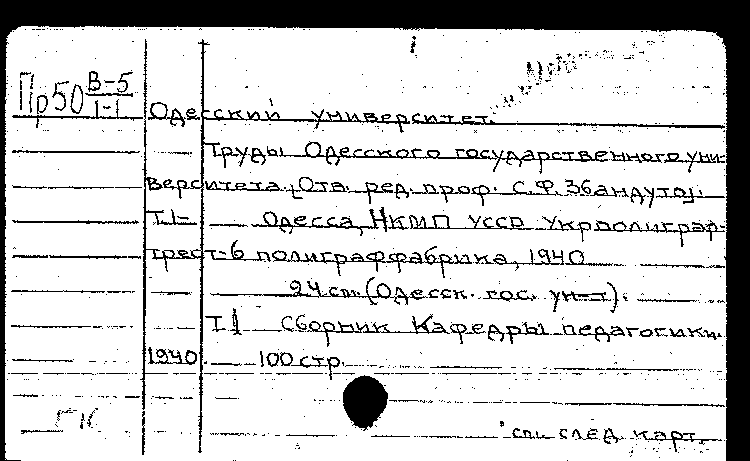 1
Пр50 В-5/1-1
Одесский университет.
Труды Одесского государственного уни-
верситета. [Отв. ред. проф. С.Ф. Збандуто].
Т.1- Одесса, НКМП УССР Укрполиграф-
трест-6 полиграффабрика, 1940
24 см. (Одесск. гос. ун-т).
Т 1 Сборник Кафедры педагогики.
1940. 100 стр.
ГК
см. след. карт.